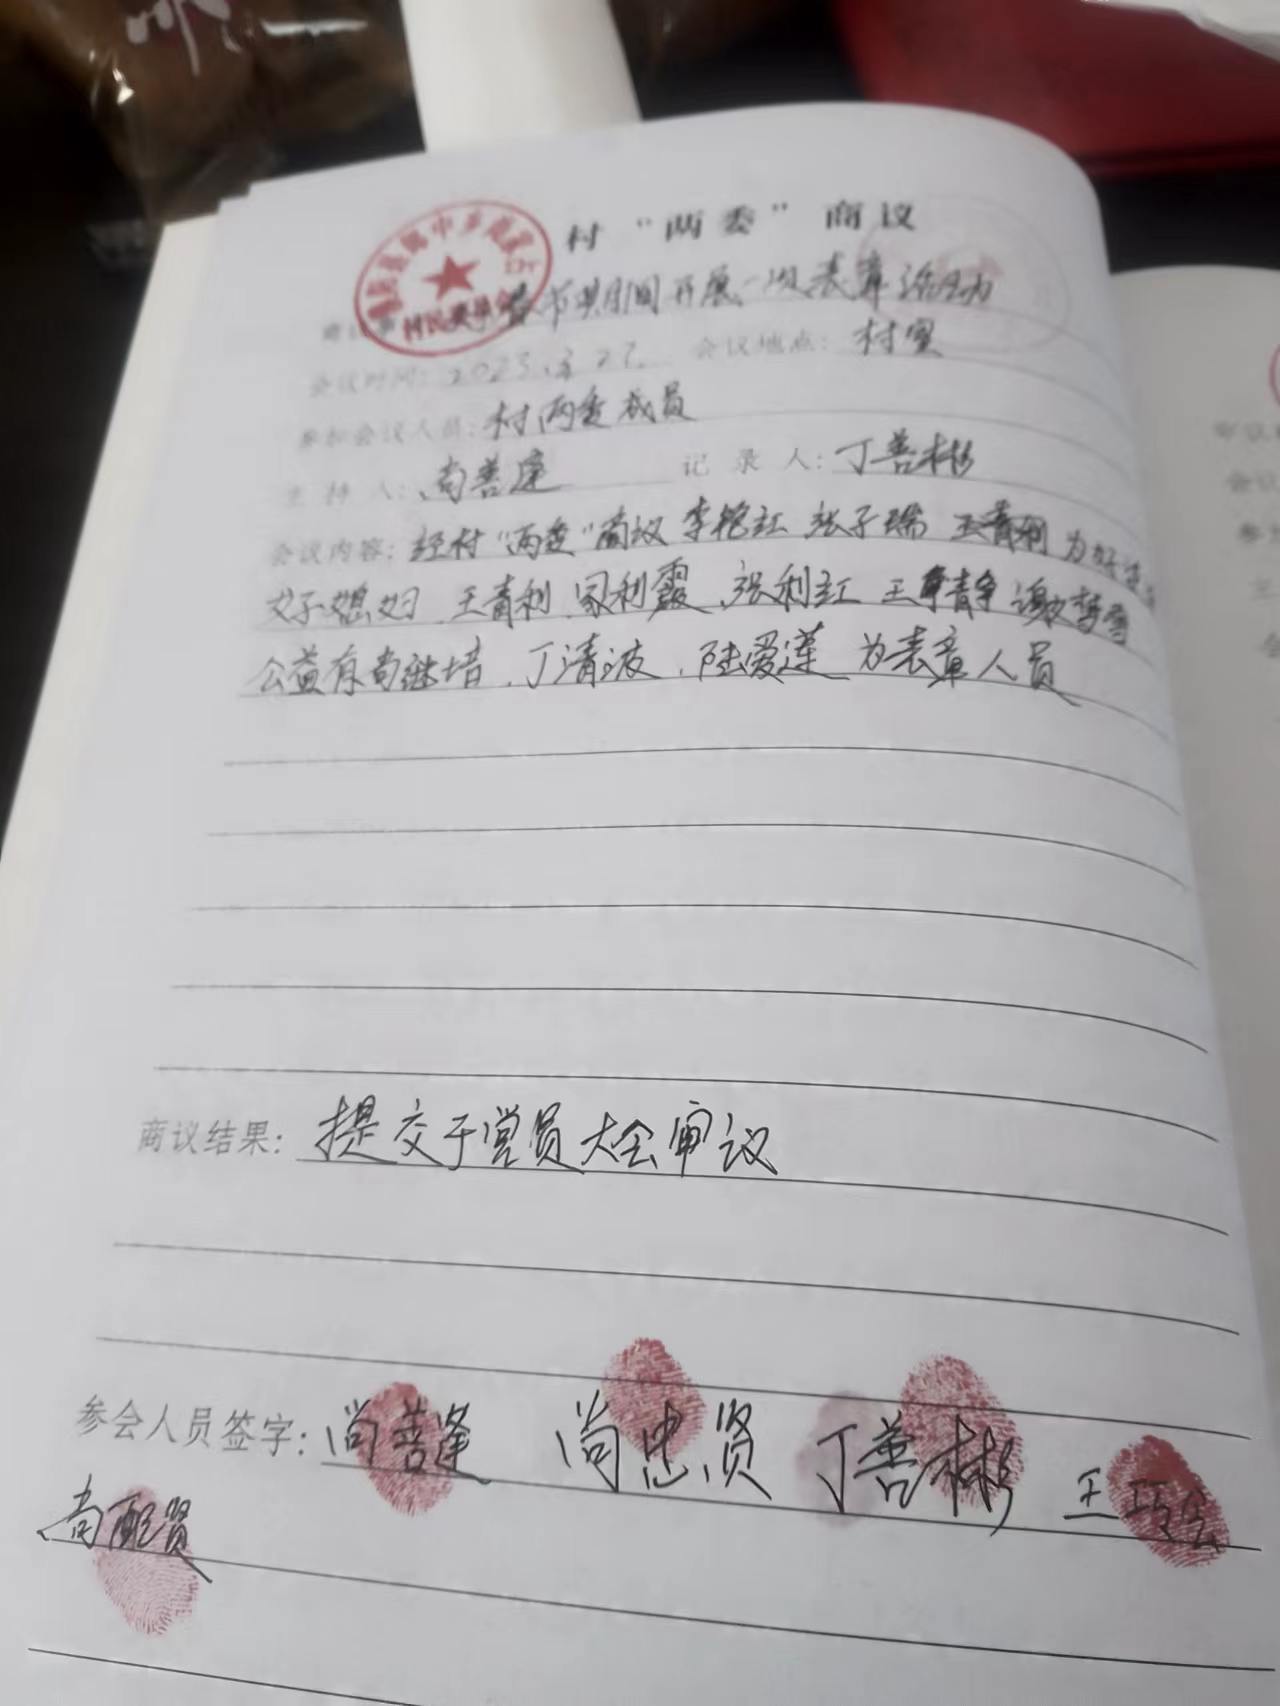 村“两委”商议
春节期间开展一次表章活动
会议时间：2023.3.27. 会议地点：村室
参加会议人员：村两委成员
主持人：尚善逢 记录人：丁善彬
会议内容：经村“两委”商议 李艳红 张子瑞 王青利 为好
好媳妇．王青利．冢利霞．张利红 王静 谢梦雪
公益有尚继培．丁清波．陆爱莲 为表章人员
商议结果：提交于党员大会审议
参会人员签字：尚善逢 尚忠贤 丁善彬 王巧云
尚配贤